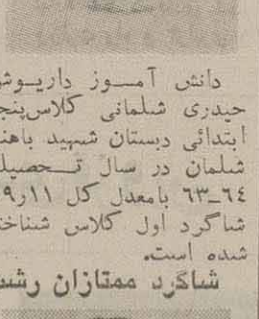 دانش آموز داریوش
حیدری شلمانی کلاس پنج
ابتدائی دبستان شهید باهن
شلمان در سال تحصیل
۶۴ـ۶۳ بامعدل کل ۱۱ر۹
شاگرد اول کلاس شناخت
شده است.
شاگرد ممتازان رشت